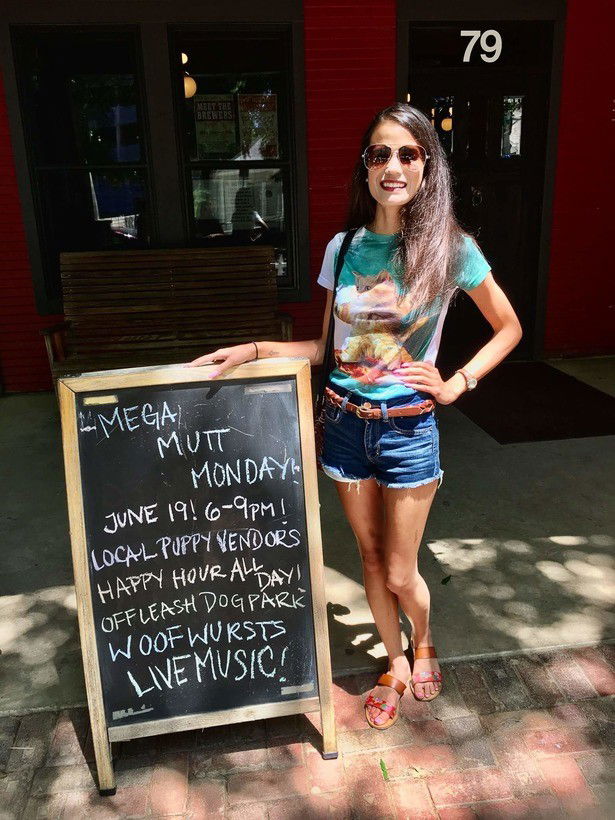 79
MEET THE
BREWERS
MEGA
MUTT
MONDAY!
JUNE 19! 6-9PM!
LOCAL PUPPY VENDORS
HAPPY HOUR ALL
DAY!
OFF LEASH DOG PARK
WOOFWURSTS
LIVE MUSIC!